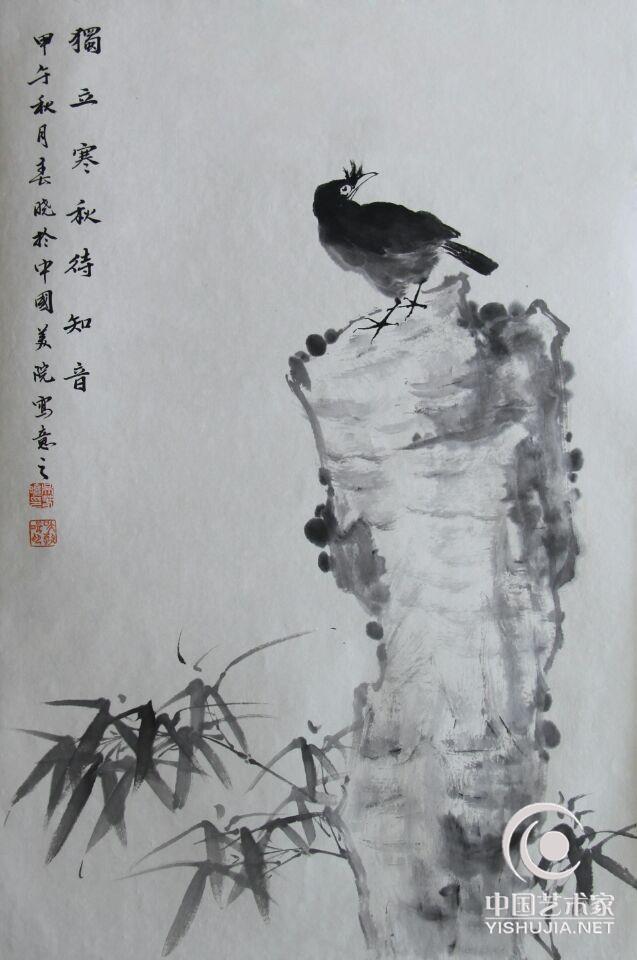 獨立寒秋待知音
甲午秋月春晓於中國美院寫意之
中国艺术家
YISHUJIA.NET